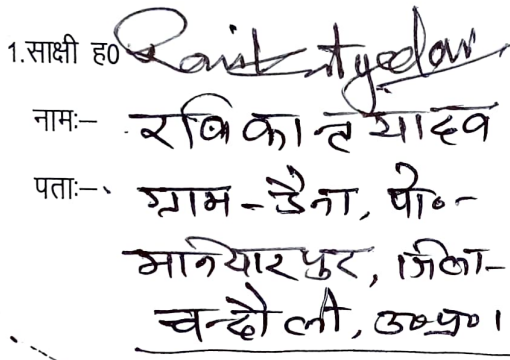 1.साक्षी ह0 Ravikant yadav
नामः– रविकान्त यादव
पताः– ग्राम-डैना, पो०-
मानियारपुर, जिला-
चन्दौली, उ०प्र०।